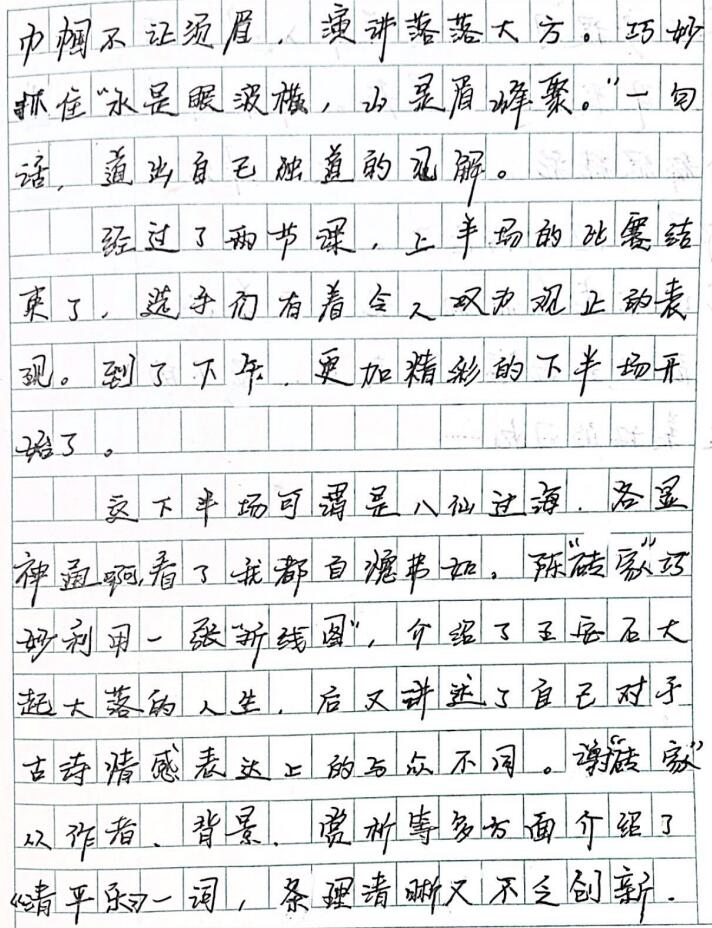 巾帼不让须眉，演讲落落大方。巧妙
抓住“水是眼波横，山是眉峰聚。”一句
话，道出自己独道的见解。
经过了两节课，上半场的比赛结
束了，选手们有着令人叹为观止的表
现。到了下午，更加精彩的下半场开
始了。
这下半场可谓是八仙过海，各显
神通啊，看了我都自愧弗如。陈“砖家”巧
妙利用一张“折线图”，介绍了王安石大
起大落的人生，后又讲述了自己对于
古诗情感表达上的与众不同。谢“砖家”
从作者、背景、赏析等多方面介绍了
《清平乐》一词，条理清晰又不乏创新.